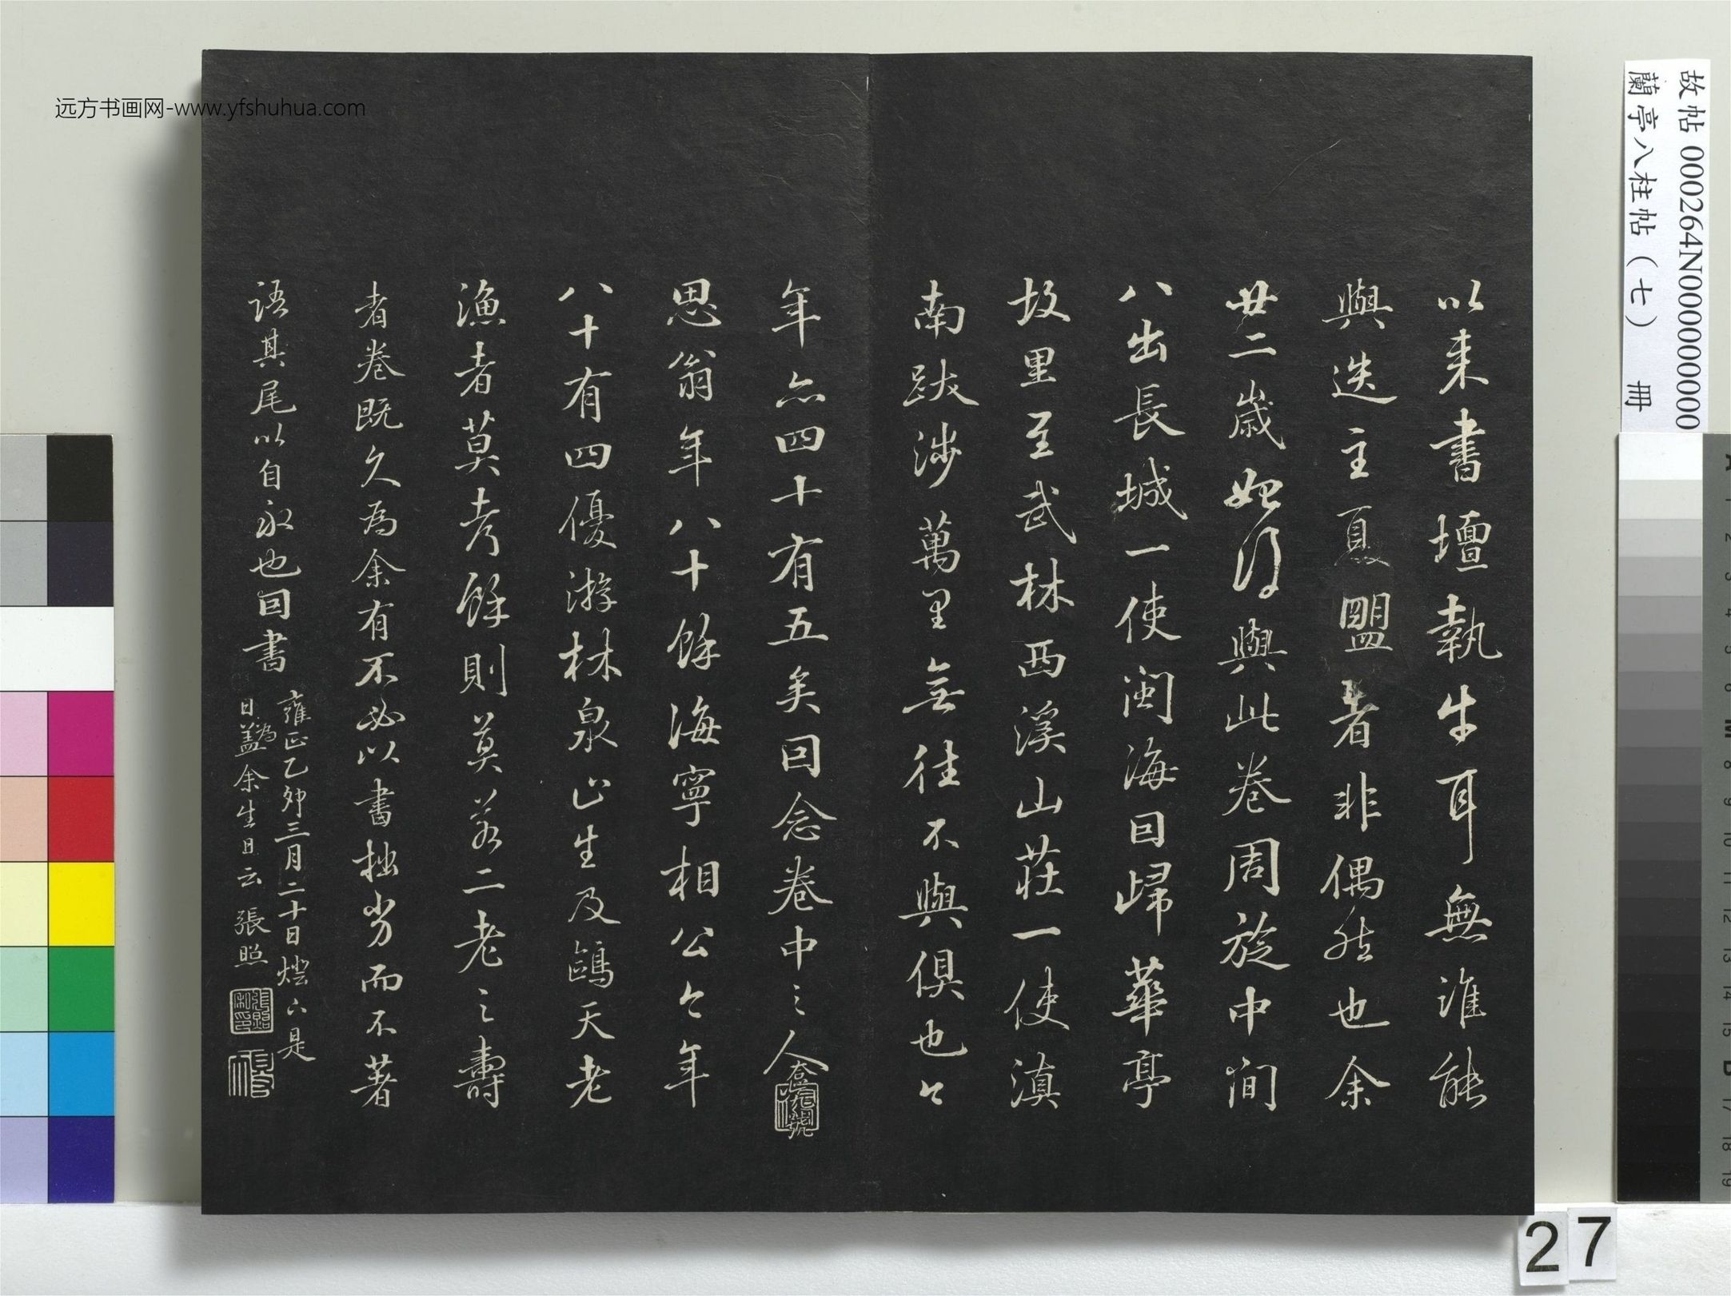 以来書壇執牛耳無誰能
與迭主夏盟者非偶然也余
廿二歲始得與此卷周旋中間
八出長城一使閩海回歸華亭
故里至武林西溪山莊一使滇
南跋涉萬里無往不與俱也今
年亦四十有五矣回念卷中之人
思翁年八十餘海寧相公今年
八十有四優游林泉山生及鷗天老
漁者莫考餘則莫若二老之壽
者卷既久為余有不必以書拙劣而不著
語其尾以自永也回書
雍正乙卯三月二十日燈下是
日為蓋余生日云 張照
远方书画网-www.yfshuhua.com
故帖 000264N000000000
蘭亭八柱帖（七） 冊
27